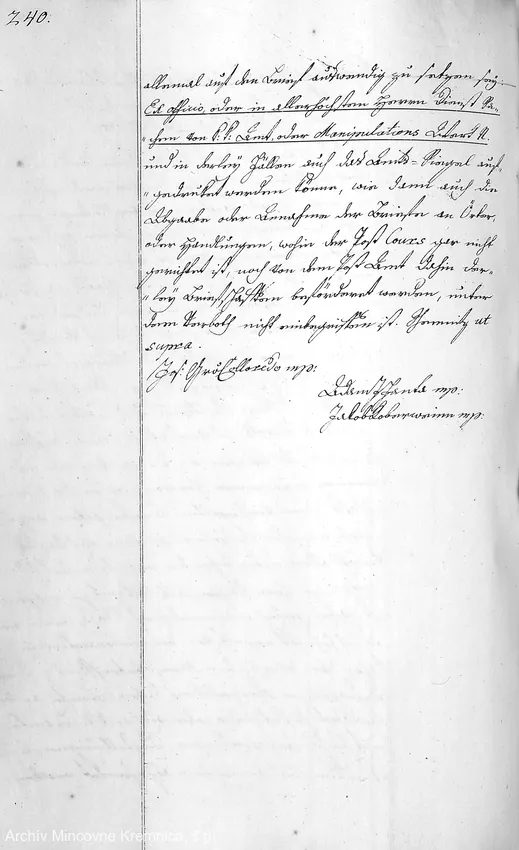 240.
allemal auf den Brief auswendig zu setzen sey.
Ex officio, oder in allerhöchsten Herrn Dienst Sa-
"chen von k: k: Amt, oder Manipulations Ambt N.
und in derley Fällen auch das Amts=Siegel auf-
"gedrucket werden könne, wie dann auch die
Abgaabe oder Benahme der Briefe an Örter,
oder Handlungen, wohin der Post Cours gar nicht
gerichtet ist, noch von dem Post Amt dahin der-
"ley Briefschaften befördert werden, unter
dem Verboth nicht einbegriffen ist. Schemnitz ut
supra.
Jos: Gr: Colloredo mp:
mp:
mp:
Archiv Mincovne Kremnica, š.p.